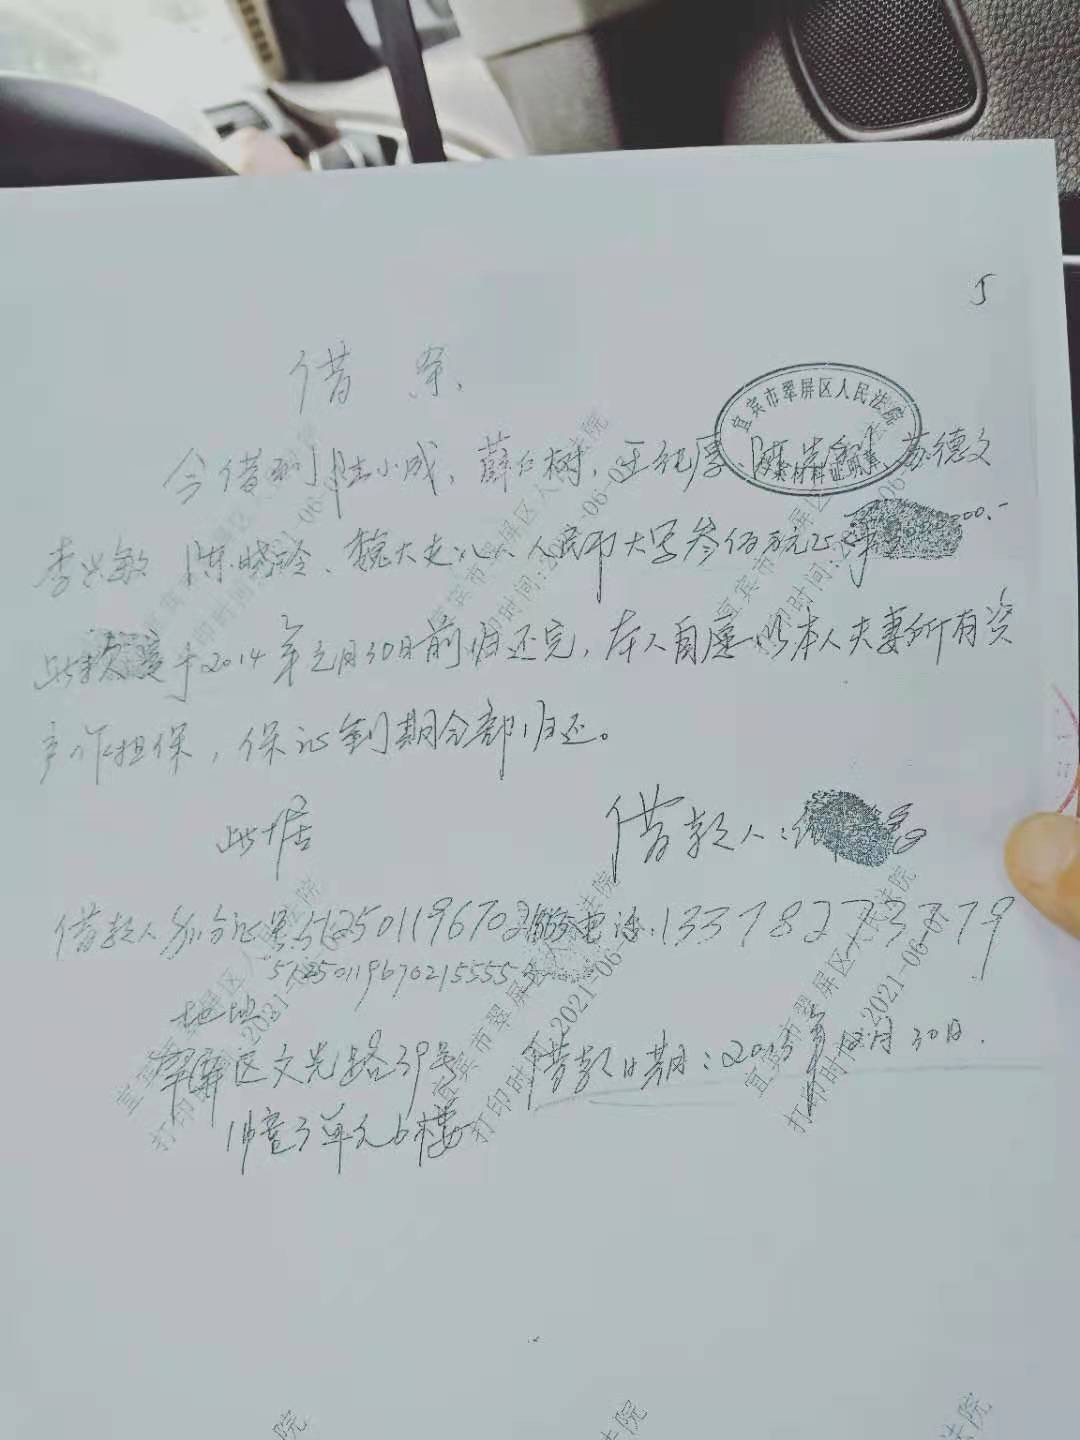 5
借 条
今借到陆小成、薛仁树、王纪厚、苏德文
宜宾市翠屏区人民法院
李兴敏 陈晓玲、魏大夫八人人民币大写叁佰万元正 000.-
此款 于2014年元月30日前归还完，本人自愿以本人夫妻所有资
产作担保，保证到期全部归还。
此据 借款人：
借款人身份证号 电话：13378273779
512501196702155554
地址
翠屏区文光路39号 借款日期：2013年 月30日.
1幢3单元6楼
宜宾市翠屏区人民法院
打印时间:2021-06-07